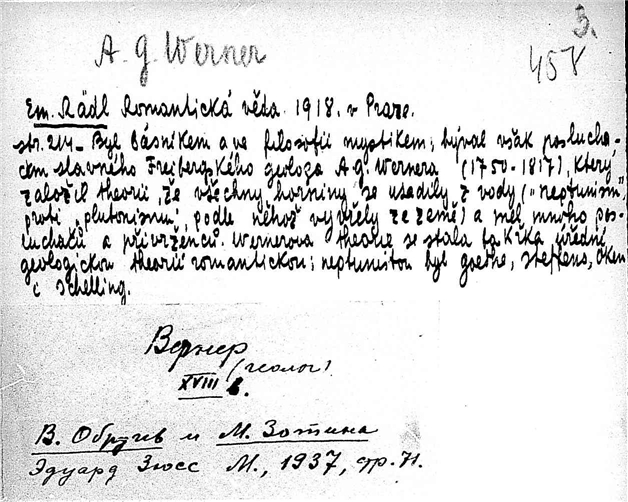 3.
A. G. Werner
457
Em. Rádl Romantická věda. 1918. v Praze.
str. 214 - Byl básníkem a ve filosofii mystikem; býval však poslucha-
čem slavného Freibergského geologa A. G. Wernera (1750-1817), který
založil theorii, že všechny horniny se usadily z vody („neptunism"
proti „plutonismu", podle něhož vyvřely ze země) a měl mnoho po-
sluchačů a přívrženců. Wernerova theorie se stala takřka úřední
geologickou theorií romantickou; neptunistou byl Goethe, Steffens, Oken
i Schelling.
Вернер
(геолог)
XVIII в.
В. Обручев и М. Зотина
Эдуард Зюсс М., 1937, стр.